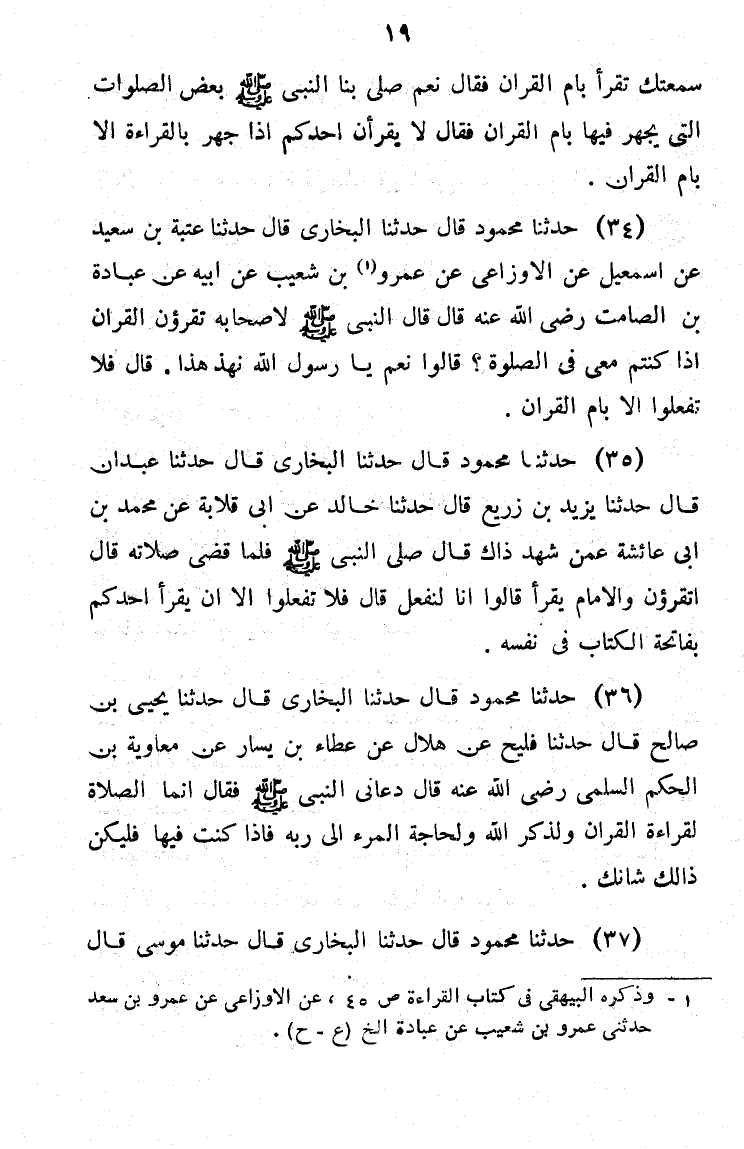 ١٩
سمعتك تقرأ بام القران فقال نعم صلى بنا النبى ﷺ بعض الصلوات
التى يجهر فيها بام القران فقال لا يقرأن احدكم اذا جهر بالقراءة الا
بام القران .
(٣٤) حدثنا محمود قال حدثنا البخارى قال حدثنا عتبة بن سعيد
عن اسمعيل عن الاوزاعى عن عمرو(١) بن شعيب عن ابيه عن عبادة
بن الصامت رضى الله عنه قال قال النبى ﷺ لاصحابه تقرؤن القران
اذا كنتم معى فى الصلوة ؟ قالوا نعم يا رسول الله نهذ هذا . قال فلا
تفعلوا الا بام القران .
(٣٥) حدثنا محمود قال حدثنا البخارى قال حدثنا عبدان
قال حدثنا يزيد بن زريع قال حدثنا خالد عن ابى قلابة عن محمد بن
ابى عائشة عمن شهد ذاك قال صلى النبى ﷺ فلما قضى صلاته قال
اتقرؤن والامام يقرأ قالوا انا لنفعل قال فلا تفعلوا الا ان يقرأ احدكم
بفاتحة الكتاب فى نفسه .
(٣٦) حدثنا محمود قال حدثنا البخارى قال حدثنا يحيى بن
صالح قال حدثنا فليح عن هلال عن عطاء بن يسار عن معاوية بن
الحكم السلمى رضى الله عنه قال دعانى النبى ﷺ فقال انما الصلاة
لقراءة القران ولذكر الله ولحاجة المرء الى ربه فاذا كنت فيها فليكن
ذالك شانك .
(٣٧) حدثنا محمود قال حدثنا البخارى قال حدثنا موسى قال
١ - وذكره البيهقى فى كتاب القراءة ص ٤٥ ، عن الاوزاعى عن عمرو بن سعد
حدثنى عمرو بن شعيب عن عبادة الخ (ع - ح) .